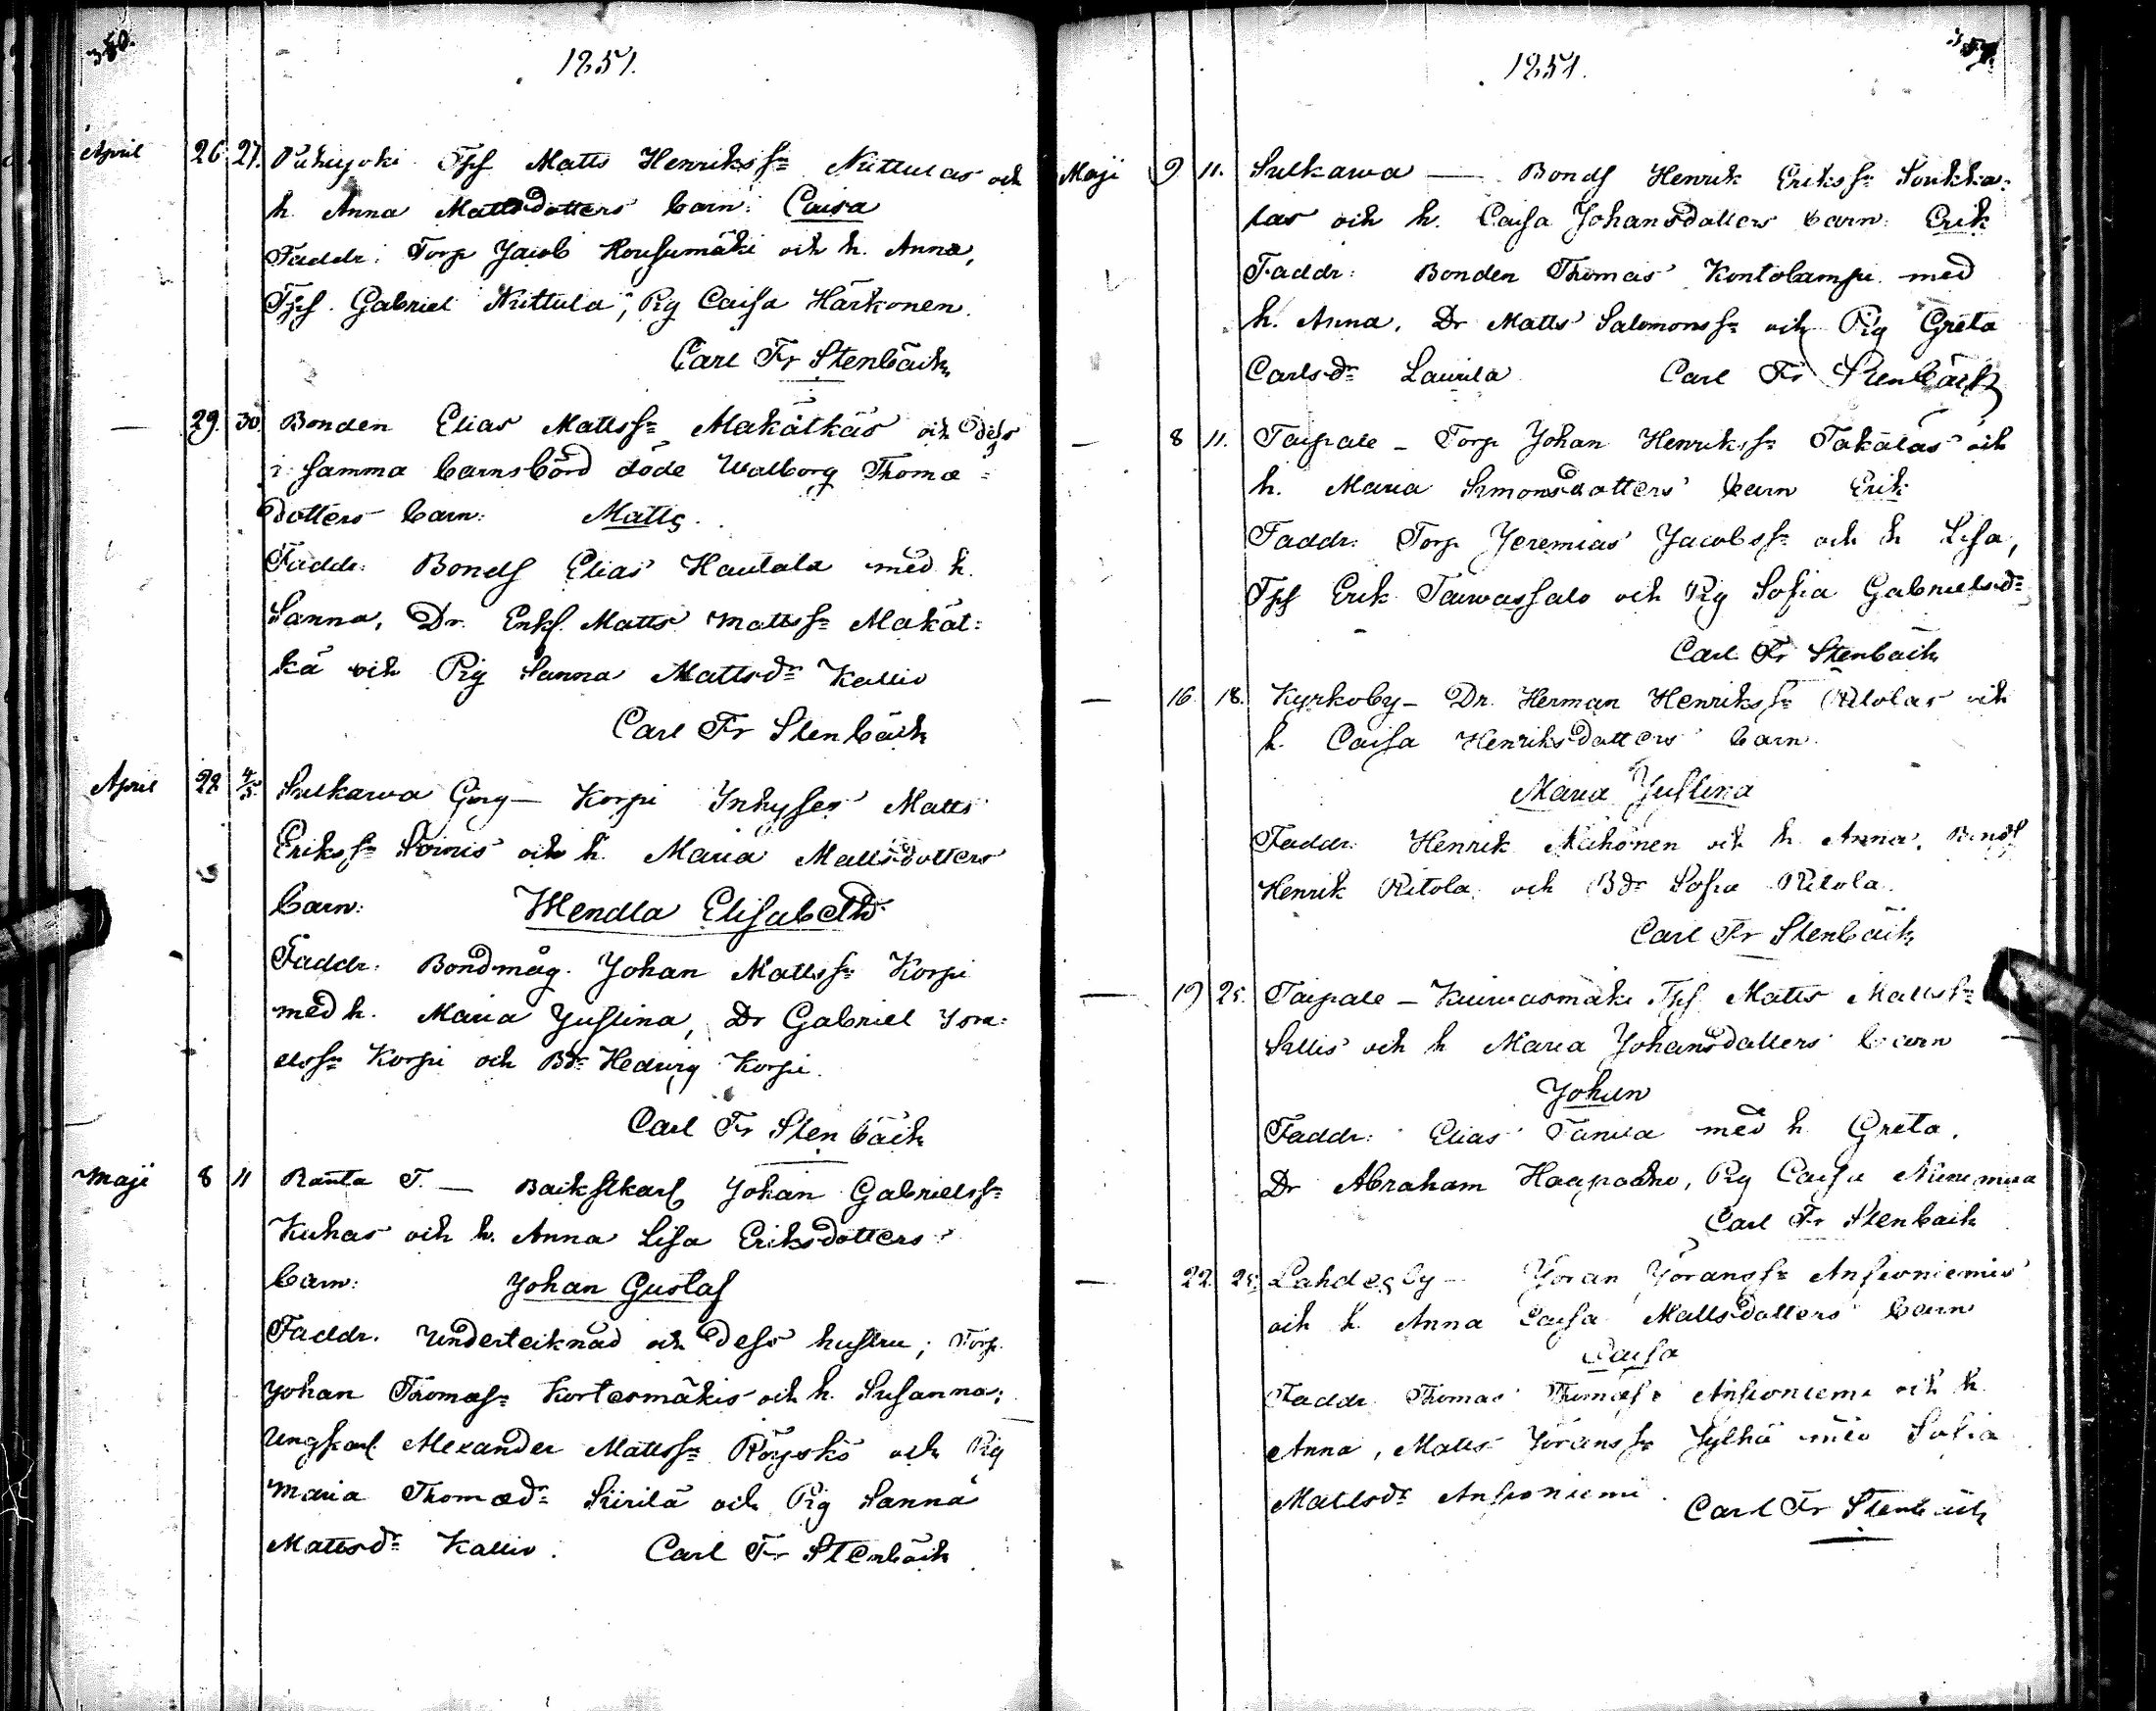 350.
1851.
April 26 27. Puhujoki Tpf Matts Henrikss: Nittulas och
h. Anna Mattsdotters barn: Caisa
Faddr: Torp Jacob Housumäki och h. Anna,
Tpf. Gabriel Nittula, Pig Caisa Härkonen.
Carl Fr Stenbäck
— 29. 30. Bonden Elias Mattss: Makätkäs och dess
i samma barnsbörd döde Walborg Thomæ=
dotters barn: Matts.
Faddr: Bonds Elias Hautala med h.
Sanna, Dr. Enkf. Matts Mattss: Makät=
kä och Pig Sanna Mattsdr Kallio
Carl Fr Stenbäck
April 22 4/5. Sulkawa Korpi Inhyses Matts
Erikss: Soinis och h. Maria Mattsdotters
barn: Hendla Elisabeth
Faddr: Bondmåg. Johan Mattss: Korpi
med h. Maria Justina, Dr Gabriel Isra=
elss: Korpi och Bdr Hedwig Korpi.
Carl Fr Stenbäck
Maji 8 11 Ranta T. — Backstkarl Johan Gabrielss:
Kuhas och h. Anna Lisa Eriksdotters
barn: Johan Gustaf
Faddr. Undertecknad och dess hustru; Torp.
Johan Thomæs: Kortesmäkis och h. Susanna;
Ungkarl Alexander Mattss: Röyskö och Pig
Maria Thomædr Siirilä och Pig Sanna
Mattsdr Kallio. Carl Fr Stenbäck
1851.
Maji 9 11. Sulkawa — Bonds Henrik Erikss: Soukka=
las och h. Caisa Johansdotters barn: Erik
Faddr: Bonden Thomas Kontolampi med
h. Anna, Dr Matts Salomonss: och Pig Greta
Carlsdr Laurila Carl Fr Stenbäck
— 8 11. Taipale — Torp Johan Henrikss: Takalas och
h. Maria Simonsdotters barn Erik
Faddr: Torp Jeremias Jacobss: och h Lisa,
Tpf Erik Taiwassalo och Pig Sofia Gabrielsdr
Carl Fr Stenbäck
— 16 18. Kyrkoby — Dr. Herman Henrikss: Ritolas och
h. Caisa Henriksdotters barn.
Maria Justina
Faddr: Henrik Mähönen och h. Anna, Bonds
Henrik Ritola och Bdr Sofia Ritola.
Carl Fr Stenbäck
— 19 25. Taipale — Kuiwasmäki Tpf Matts Mattss:
Sillis och h Maria Johansdotters barn
Johan
Faddr: Elias med h Greta.
Dr Abraham Haapoaho, Pig Caisa Niinimaa
Carl Fr Stenbäck
— 22. 25. Lahdesby — Jöran Jöranss: Ansioniemis
och h. Anna Caisa Mattsdotters barn
Caisa
Faddr: Thomas Thomæs: Ansioniemi och h.
Anna, Matts Jöranss: Sylhä med Sofia
Mattsdr Ansioniemi. Carl Fr Stenbäck